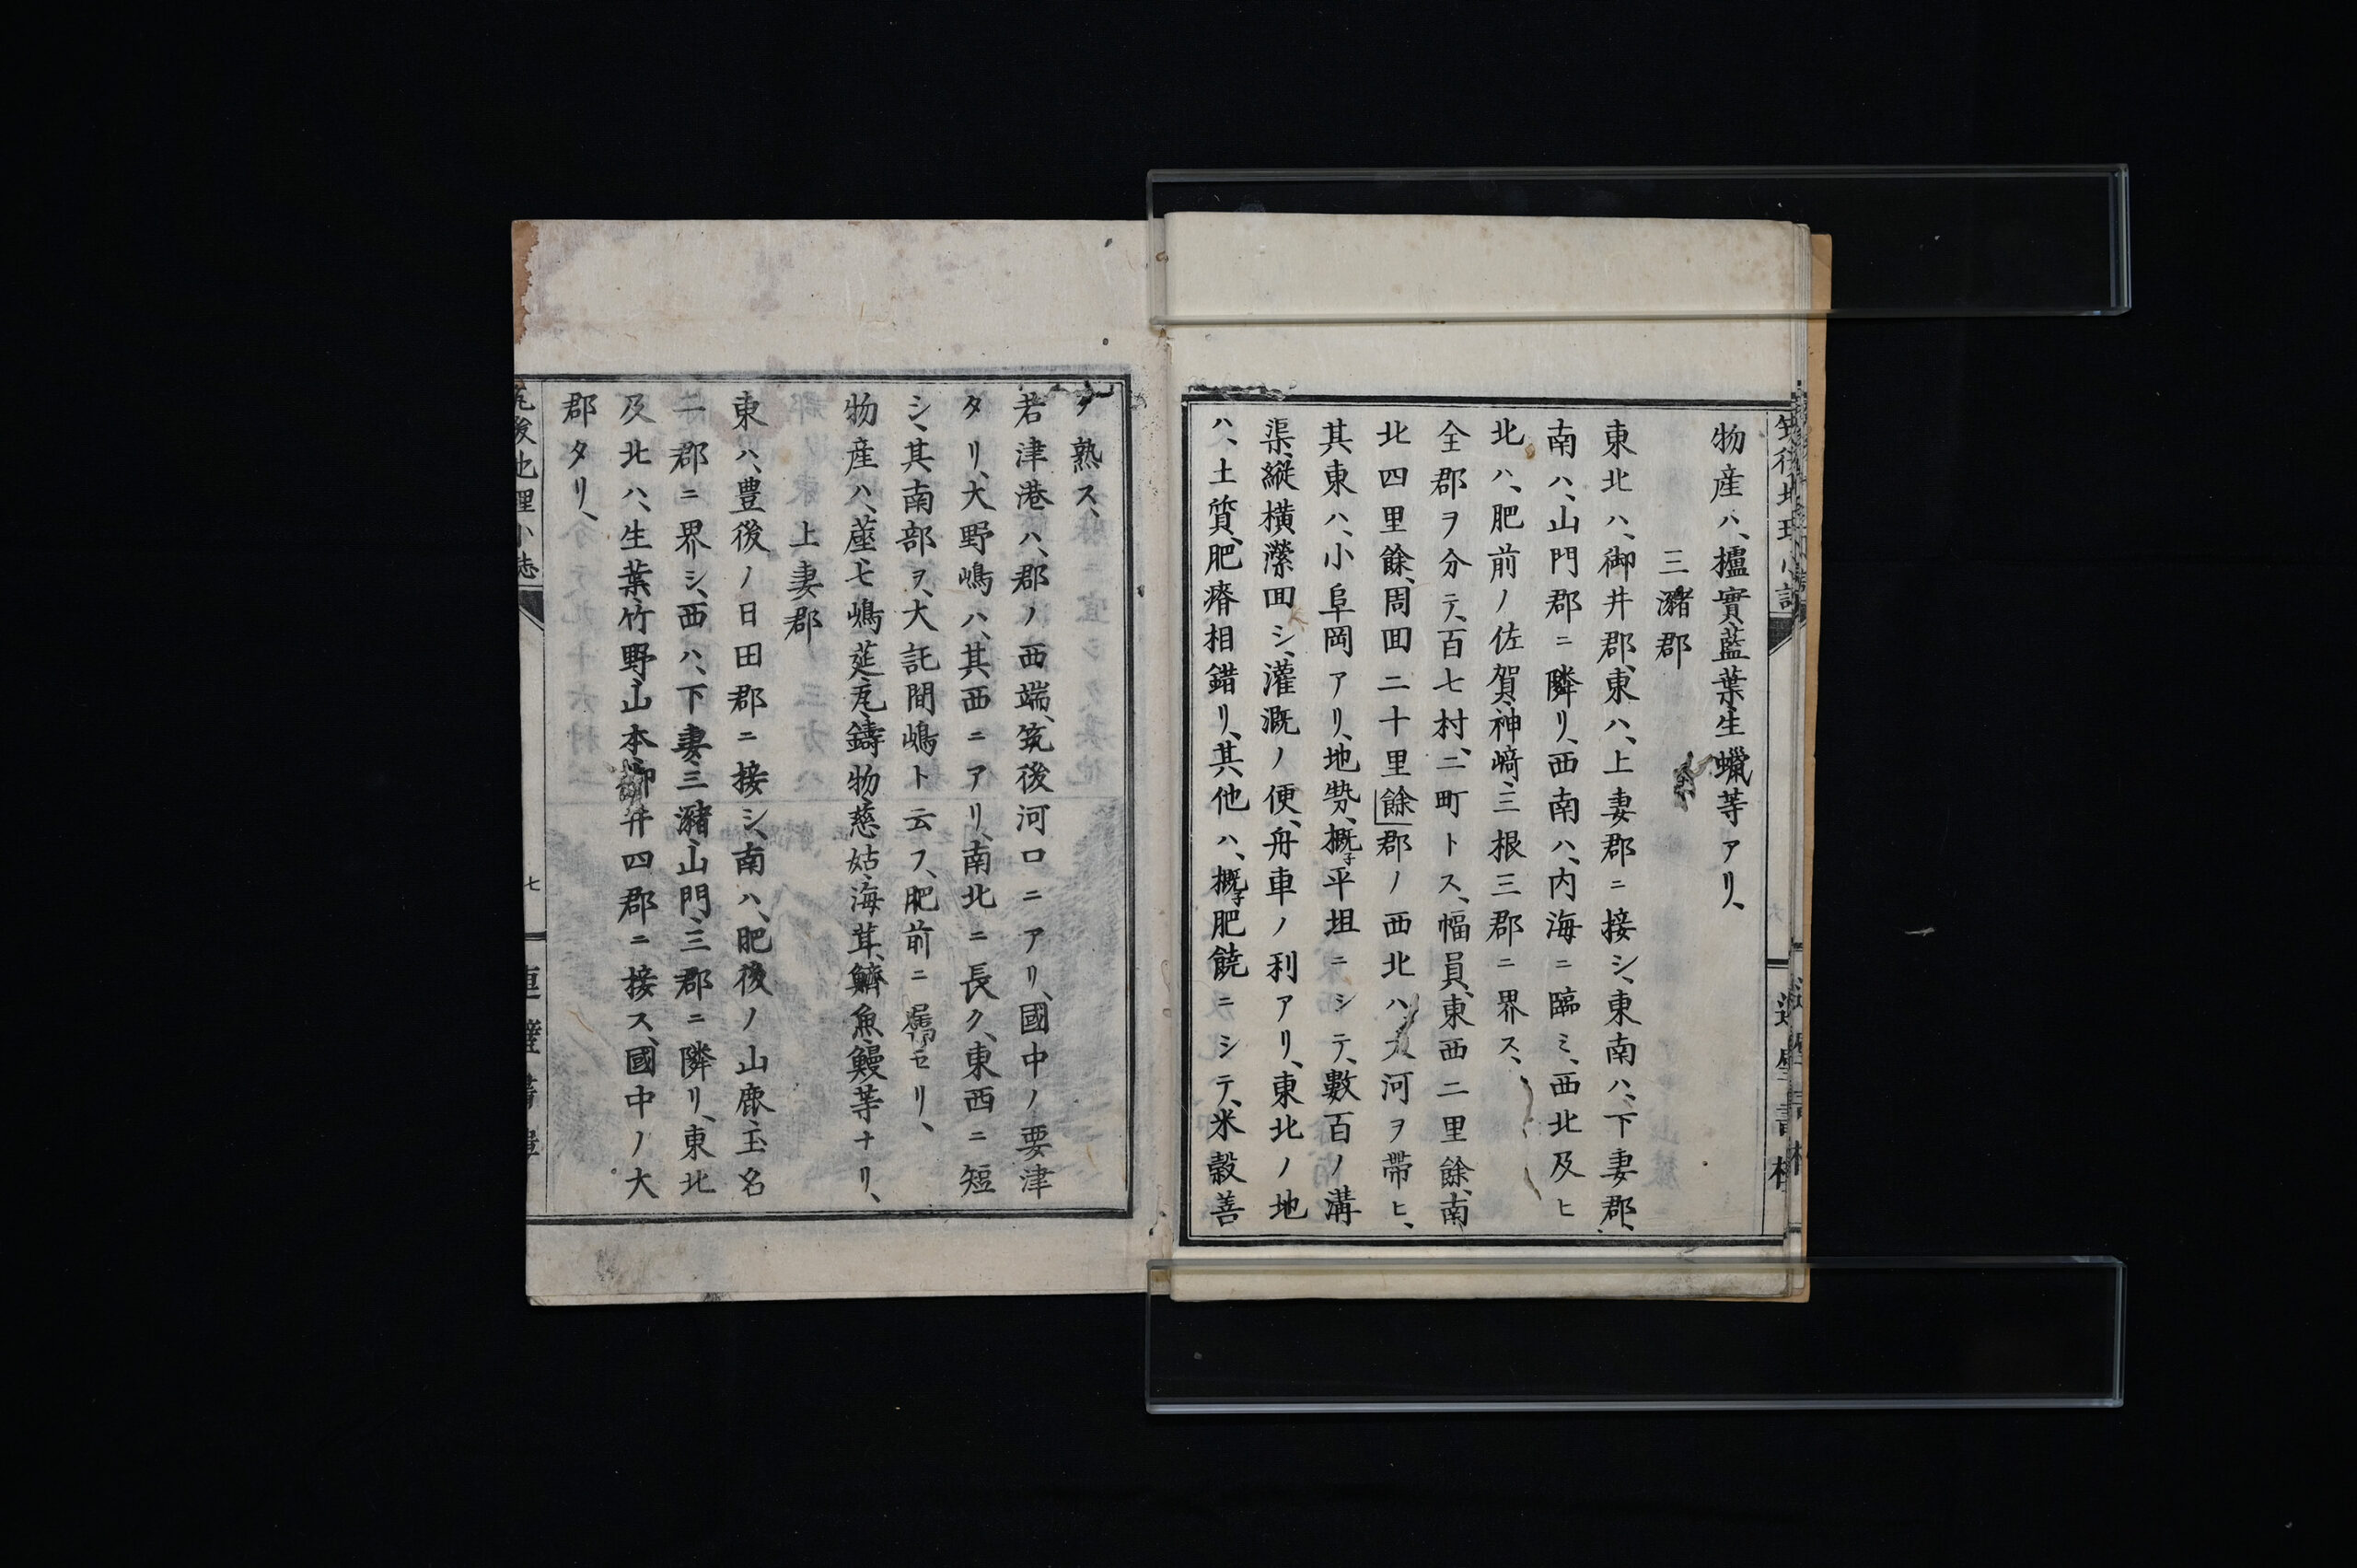 物産ハ、櫨實、藍葉、生蠟等アリ、
三瀦郡
東北ハ、御井郡、東ハ、上妻郡ニ接シ、東南ハ、下妻郡、
南ハ、山門郡ニ隣リ、西南ハ、内海ニ臨ミ、西北及ヒ
北ハ、肥前ノ佐賀、神﨑、三根三郡ニ界ス、
全郡ヲ分テ、百七村、二町トス、幅員、東西二里餘、南
北四里餘、周囬二十里餘郡ノ西北ハ、大河ヲ帶ヒ、
其東ハ、小阜岡アリ、地勢、概子平坦ニシテ、數百ノ溝
渠、縱橫瀠囬シ、灌漑ノ便、舟車ノ利アリ、東北ノ地
ハ、土質、肥瘠相錯リ、其他ハ、概子肥饒ニシテ、米穀善
ク熟ス、
若津港ハ、郡ノ西端、筑後河口ニアリ、國中ノ要津
タリ、大野嶋ハ、其西ニアリ、南北ニ長ク、東西ニ短
シ、其南部ヲ、大託間嶋ト云フ、肥前ニ屬セリ、
物産ハ、蓙、七嶋莚、瓦、鑄物、慈姑、海茸、鱭魚、鰻等ナリ、
上妻郡
東ハ、豊後ノ日田郡ニ接シ、南ハ、肥後ノ山鹿、玉名
二郡ニ界シ、西ハ、下妻、三瀦、山門、三郡ニ隣リ、東北
及北ハ、生葉、竹野、山本、御井四郡ニ接ス、國中ノ大
郡タリ、
筑後地理小志
七